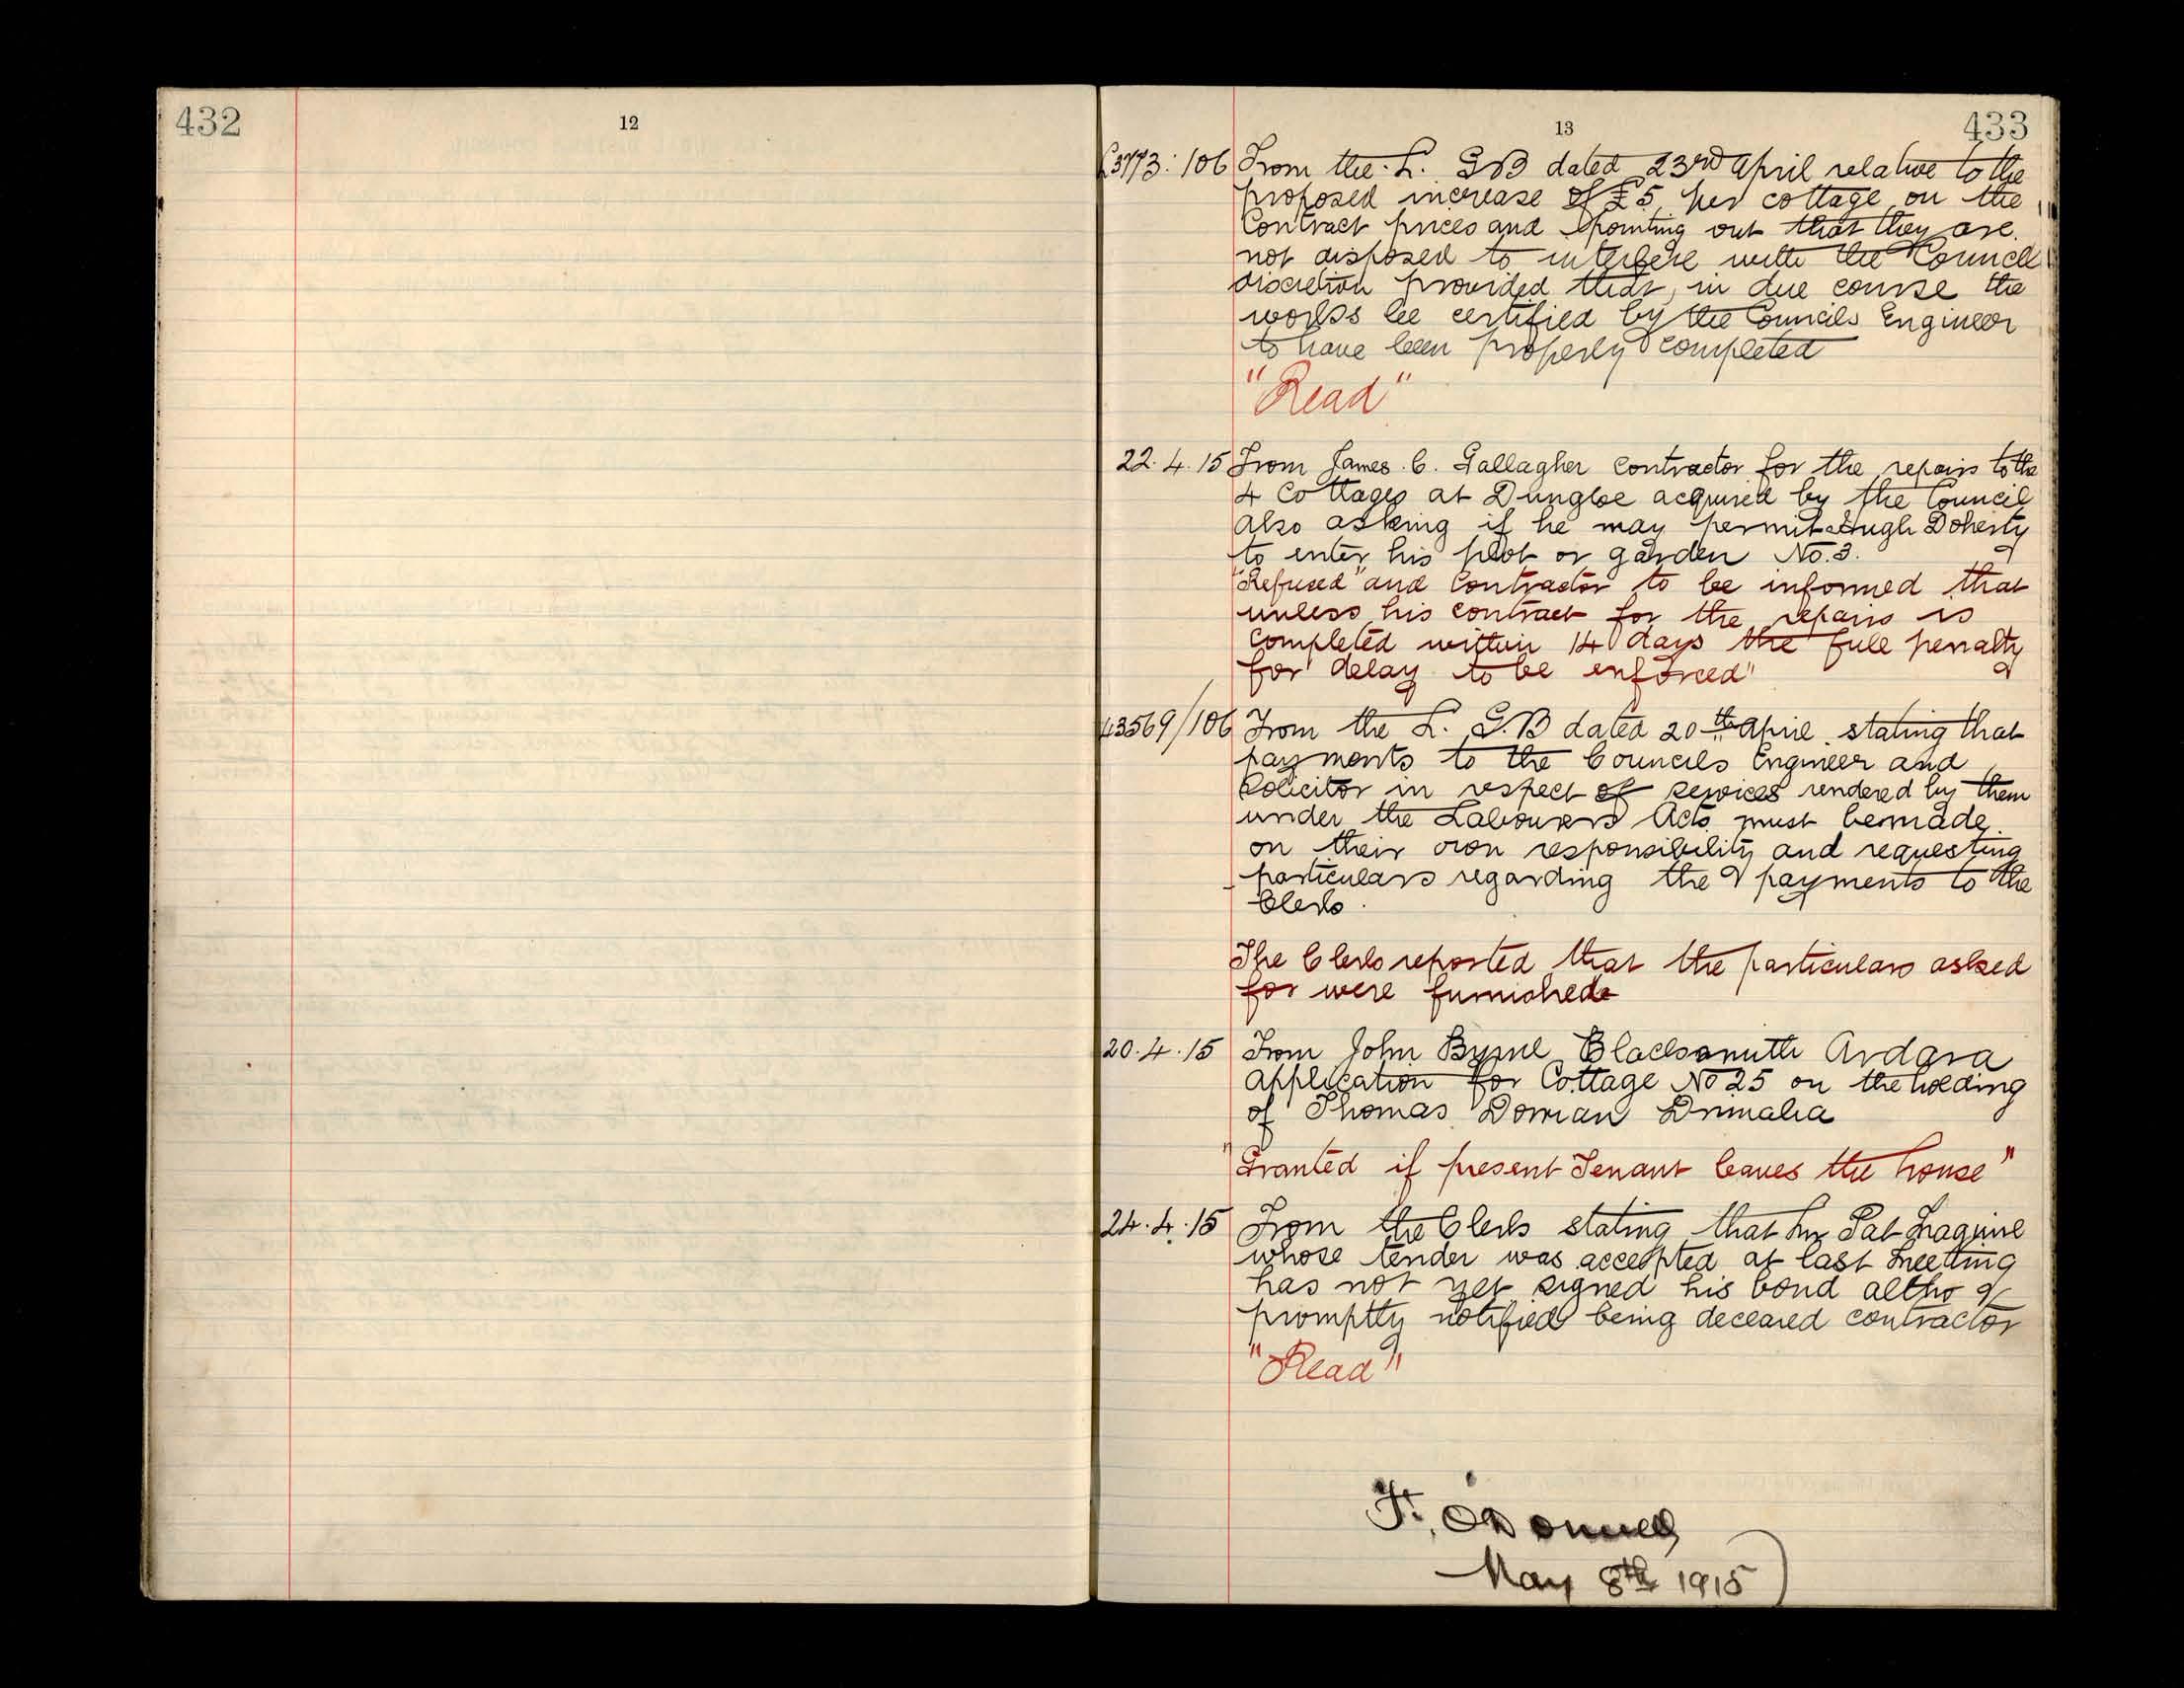 432
12
13
433
3773:106 From the L. GB dated 23rd April relative to the
proposed increase of £5 per cottage on the
Contract prices and pointing out that they are
not disposed to interfere with the Council
discretion provided that, in due course the
works be certified by the Councils Engineer
to have been properly completed
"Read"
22.4.15 From James C. Gallagher Contractor for the repairs to the
4 Cottages at Dungloe acquired by the Council
also asking if he may permit Hugh Doherty
to enter his plot or garden No. 3.
"Refused" and Contractor to be informed that
unless his contract for the repairs is
completed within 14 days the full penalty
for delay to be enforced"
43569/106 From the L. G.B dated 20th April stating that
payments to the Councils Engineer and
Solicitor in respect of services rendered by them
under the Labourers Acts must be made
on their own responsibility and requesting
particulars regarding the payments to the
Clerk.
The Clerk reported that the particulars asked
for were furnished
20.4.15 From John Byrne Blacksmith Ardara
application for Cottage No 25 on the holding
of Thomas Dorrian Drimalia
"Granted if present Tenant leaves the house"
24.4.15 From the Clerk stating that Mr Pat
whose tender was accepted at last meeting
has not yet signed his bond altho
promptly notified being deceased contractor
"Read"
F. O'Donnell
May 8th 1915